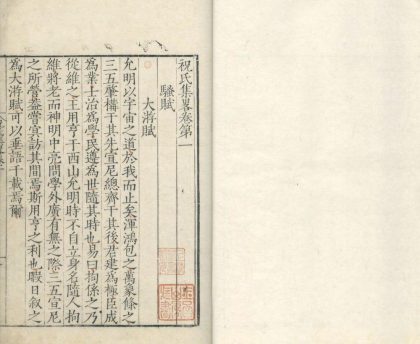 祝氏集畧卷第一
騷賦
大游賦
允明以宇宙之道於我而止矣渾鴻包之萬象條之
三五肇構于其先宣尼總齊于其後君建為極臣成
為業士治為學民遵為世隨其時也易曰拘係之乃
從維之王用亨于西山允明時不自立身名隨人拘
維將老而神明中亮問學外廣有無之際三五宣尼
之所營葢嘗宣訪其間焉斯用亨之利也暇日叙之
為大游賦可以垂語千載焉爾